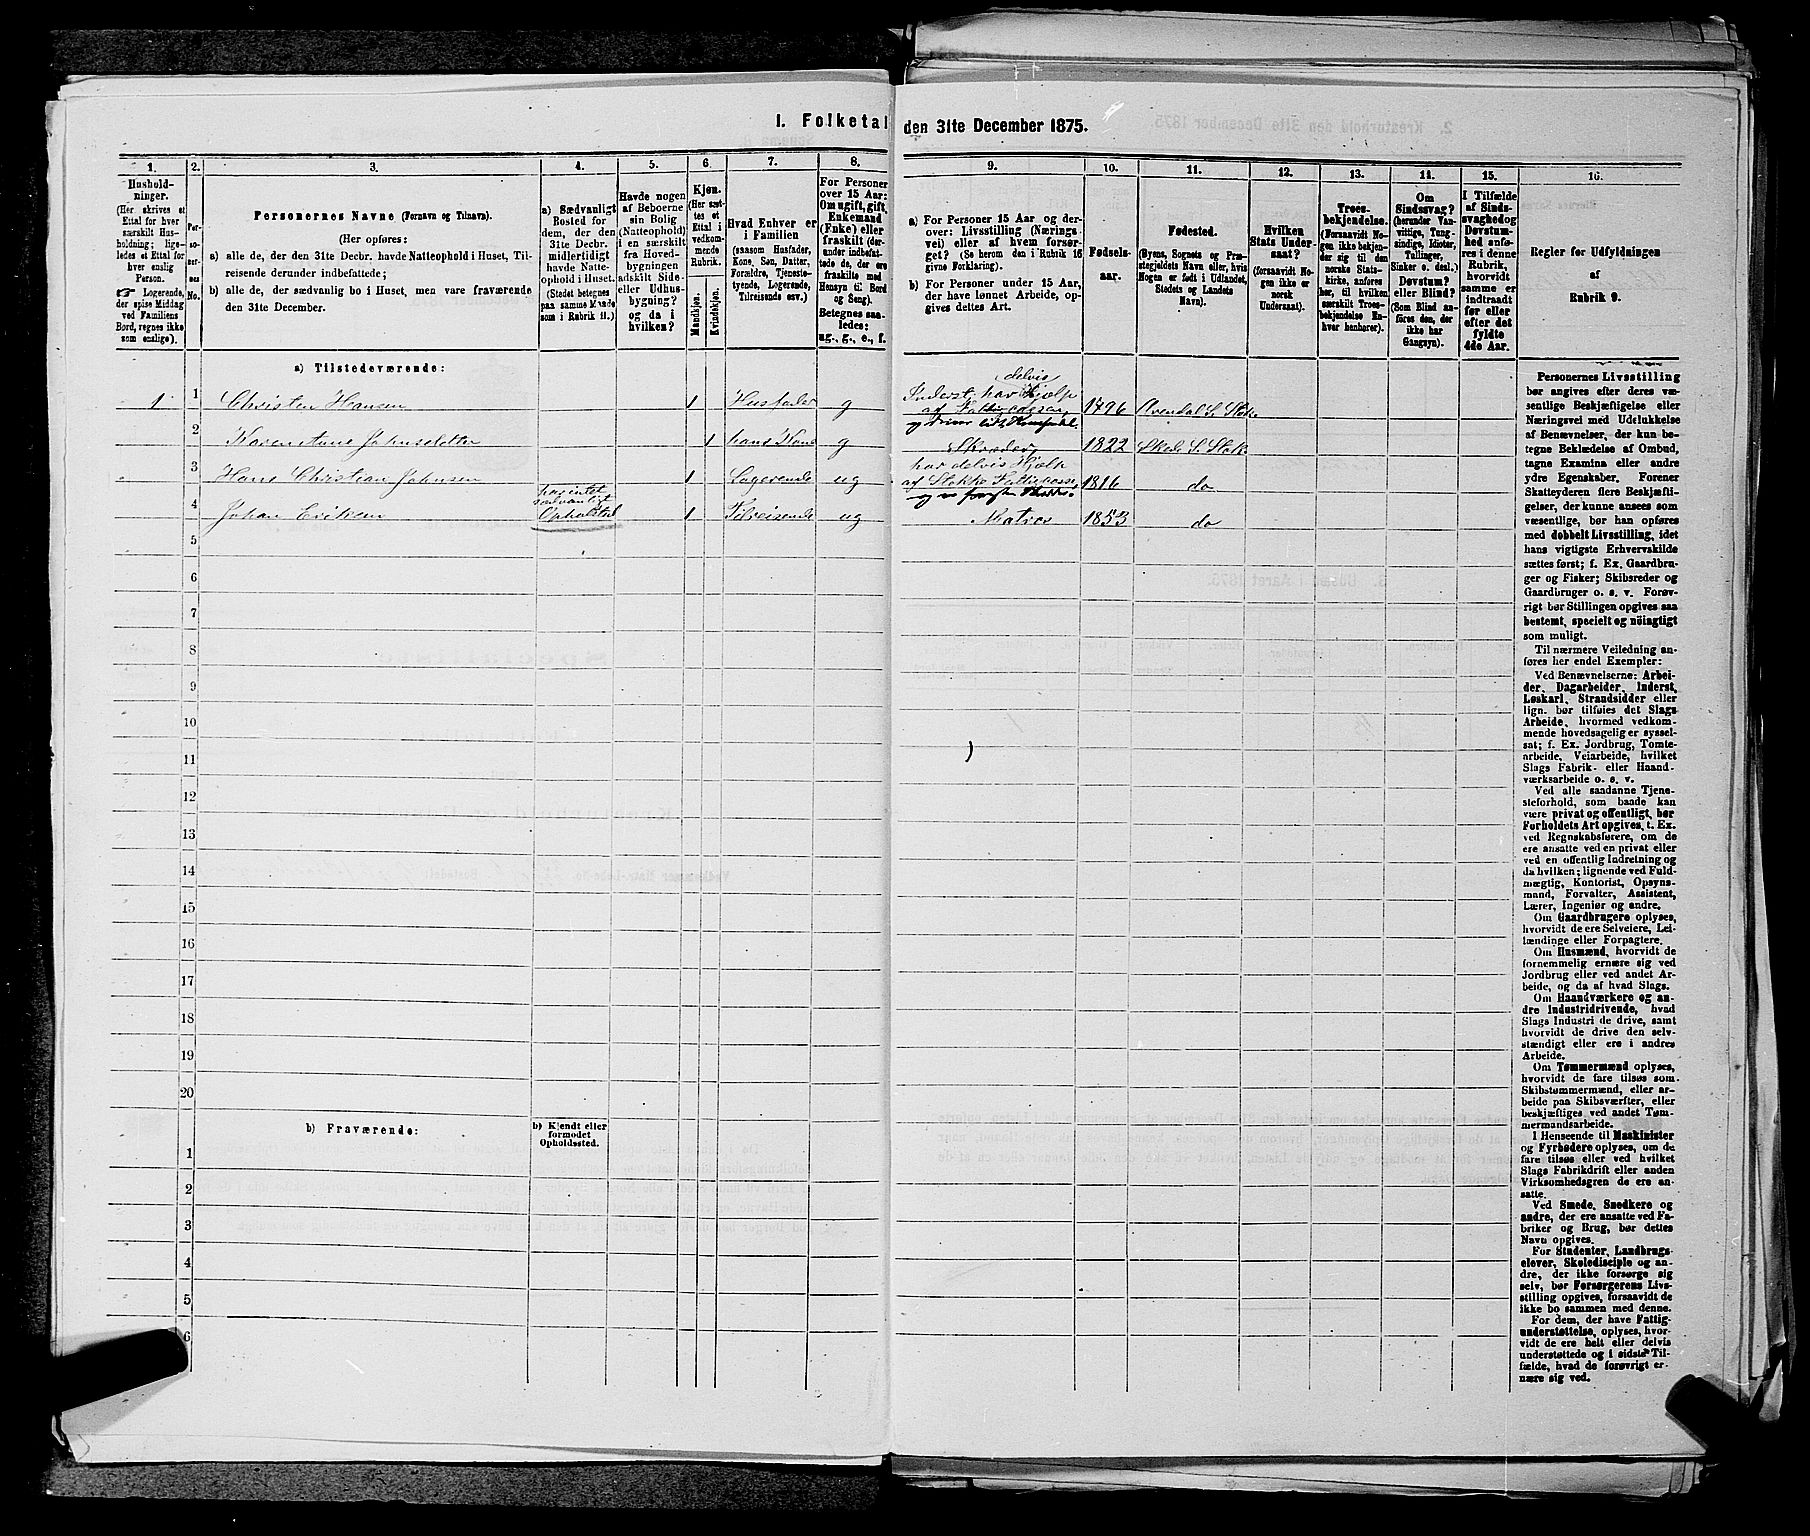 I. Folketal den 31te December 1875.
1.
Hushold-
ninger.
(Her skrives et
Ettal for hver
særskilt Hus-
holdning; lige-
ledes et Ettal for
hver enslig
Person.
☞ Logerende,
der spise Middag
ved Familiens
Bord, regnes ikke
som enslige).
2.
Per-
so-
ner-
nes
No.
3.
Personernes Navne (Fornavn og Tilnavn).
(Her opføres:
a) alle de, der den 31te Decbr. havde Natteophold i Huset, Til-
reisende derunder indbefattede;
b) alle de, der sædvanlig bo i Huset, men vare fraværende
den 31te December.
4.
a) Sædvanligt
Bosted for
dem, der den
31te Decbr.
midlertidigt
havde Natte-
ophold i Huset.
(Stedet betegnes
paa samme Maade
som i Rubrik 11.)
5.
Havde nogen
af Beboerne
sin Bolig
(Natteophold)
i en særskilt
fra Hoved-
bygningen
adskilt Side-
eller Udhus-
bygning?
og da i
hvilken?
6.
Kjøn.
(Her sæt-
tes et
Ettal i
vedkom-
mende
Rubrik.
Mandkjøn.
Kvindekjøn.
7.
Hvad Enhver er
i Familien
(saasom Husfader,
Kone, Søn, Datter,
Forældre, Tjeneste-
tyende, Logerende,
Tilreisende osv.)
8.
For Personer
over 15 Aar:
Om ugift, gift,
Enkemand
(Enke) eller
fraskilt (der-
under indbefat-
tede de, der ere
fraskilte med
Hensyn til Bord
og Seng).
Betegnes saa-
ledes:
ug., g., e., f.
9.
a) For Personer 15 Aar og der-
over: Livsstilling (Nærings-
vei) eller af hvem forsør-
get? (Se herom den i Rubrik 16
givne Forklaring).
b) For Personer under 15 Aar,
der have lønnet Arbeide, op-
gives dettes Art.
10.
Fødsels-
aar.
11.
Fødested.
(Byens, Sognets og Præ-
stegjeldets Navn eller, hvis
Nogen er født i Udlandet,
Stedets og Landets
Navn).
12.
Hvilken
Stats Under-
saat?
(forsaavidt No-
gen ikke er
norsk
Undersaat).
13.
Troes-
bekjendelse.
(Forsaavidt No-
gen ikke bekjen-
der sig til den
norske Stats-
kirke, anføres
her, til hvilken
særskilt Troes-
bekjendelse En-
hver henhører).
14.
Om
Sindssvag?
(herunder Van-
vittige, Tung-
sindige, Idioter,
Tullinger,
Sinker o. desl.)
Døvstum?
eller Blind?
(Som Blind an-
føres den, der
ikke har
Gangsyn).
15.
I Tilfælde
af Sinds-
svaghed og
Døvstum-
hed anfø-
res i denne
Rubrik,
hvorvidt
samme er
indtraadt
før eller
efter det
fyldte
4de Aar.
16.
Regler for Udfyldningen
af
Rubrik 9.
a) Tilstedeværende:
1 1 Christen Hansen 1 Husfader g Inderst, har delvis Hjælp
af Fattigcassen, 1796 Arendal S. Stok
2 Karen Anne Johnsdatter 1 hans Kone g 1822 Skede S. Stok
3 Hans Christian Johnsen 1 Logerende ug har delvis Hjælp
af Stokke Fattigcasse 1816 do
4 Johan Eriksen har intet
sædvanligt
Opholdsted 1 Tilreisende ug Matros 1853 do
5
6
7
8
9
10
11
12
13
14
15
16
17
18
19
20
b) Fraværende:
b) Kjendt eller
formodet
Opholdssted.
1
2
3
4
5
6
Personernes Livsstilling
bør angives efter deres væ-
sentlige Beskjæftigelse eller
Næringsvei med Udelukkelse
af Benævnelser, der kun be-
tegne Beklædelse af Ombud,
tagne Examina eller andre
ydre Egenskaber. Forener
Skatteyderen flere Beskjæfti-
gelser, der kunne ansees som
væsentlige, bør han opføres
med dobbelt Livsstilling, idet
hans vigtigste Erhvervskilde
sættes først; f. Ex. Gaardbru-
ger og Fisker; Skibsreder og
Gaardbruger o. s. v. Forøv-
rigt bør Stillingen opgives saa
bestemt, specielt og nöiagtigt
som muligt.
Til nærmere Veiledning an-
føres her endel Exempler:
Ved Benævnelserne: Arbei-
der, Dagarbeider, Inderst,
Løskarl, Strandsidder eller
lign. bør tilføies det Slags
Arbeide, hvormed vedkom-
mende hovedsagelig er syssel-
sat; f. Ex. Jordbrug, Tomte-
arbeide, Veiarbeide, hvilket
Slags Fabrik- eller Haand-
værksarbeide o. s. v.
Ved alle saadanne Tjene-
steforhold, som baade kan
være privat og offentligt, bør
Forholdets Art opgives, t. Ex.
ved Regnskabsførere, om de
ere ansatte ved en privat eller
ved en offentlig Indretning og
da hvilken; lignende ved Fuld-
mægtig, Kontorist, Opsyns-
mand, Forvalter, Assistent,
Lærer, Ingeniør og andre.
Om Gaardbrugere oplyses,
hvorvidt de ere Selveiere, Lei-
lændinge eller Forpagtere.
Om Husmænd, hvorvidt de
fornemmelig ernære sig ved
Jordbrug eller ved andet Ar-
beide, og da af hvad Slags.
Om Haandværkere og an-
dre Industridrivende, hvad
Slags Industri de drive, samt
hvorvidt de drive den selv-
stændigt eller ere i andres
Arbeide.
Om Tømmermænd oplyses,
hvorvidt de fare tilsøs som
Skibstømmermænd, eller ar-
beide paa Skibsværfter, eller
beskjæftiges ved andet Tøm-
mermandsarbeide.
I Henseende til Maskinister
og Fyrbødere oplyses, om de
fare tilsøs eller ved hvilket
Slags Fabrikdrift eller anden
Virksomhedsgren de ere an-
satte.
Ved Smede, Snedkere og
andre, der ere ansatte ved Fa-
briker og Brug, bør dettes
Navn opgives.
For Studenter, Landbrugs-
elever, Skoledisciple og an-
dre, der ikke forsørge sig
selv, bør Forsørgerens Livs-
stilling opgives, forsaavidt de
ikke bo sammen med denne.
For dem, der have Fattig-
understøttelse, oplyses, hvor-
vidt de ere helt eller delvis
understøttede og i sidste Til-
fælde, hvad de forøvrigt er-
nære sig ved.